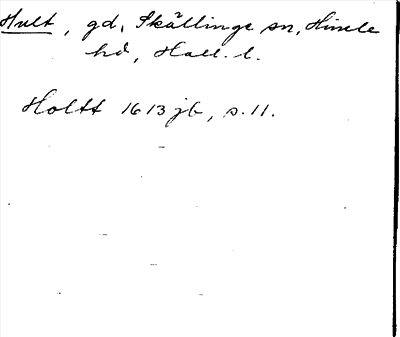 Hult, gd, Skällinge sn, Himle
hd, Hall. l.
Holtt 1613 jb, s. 11.